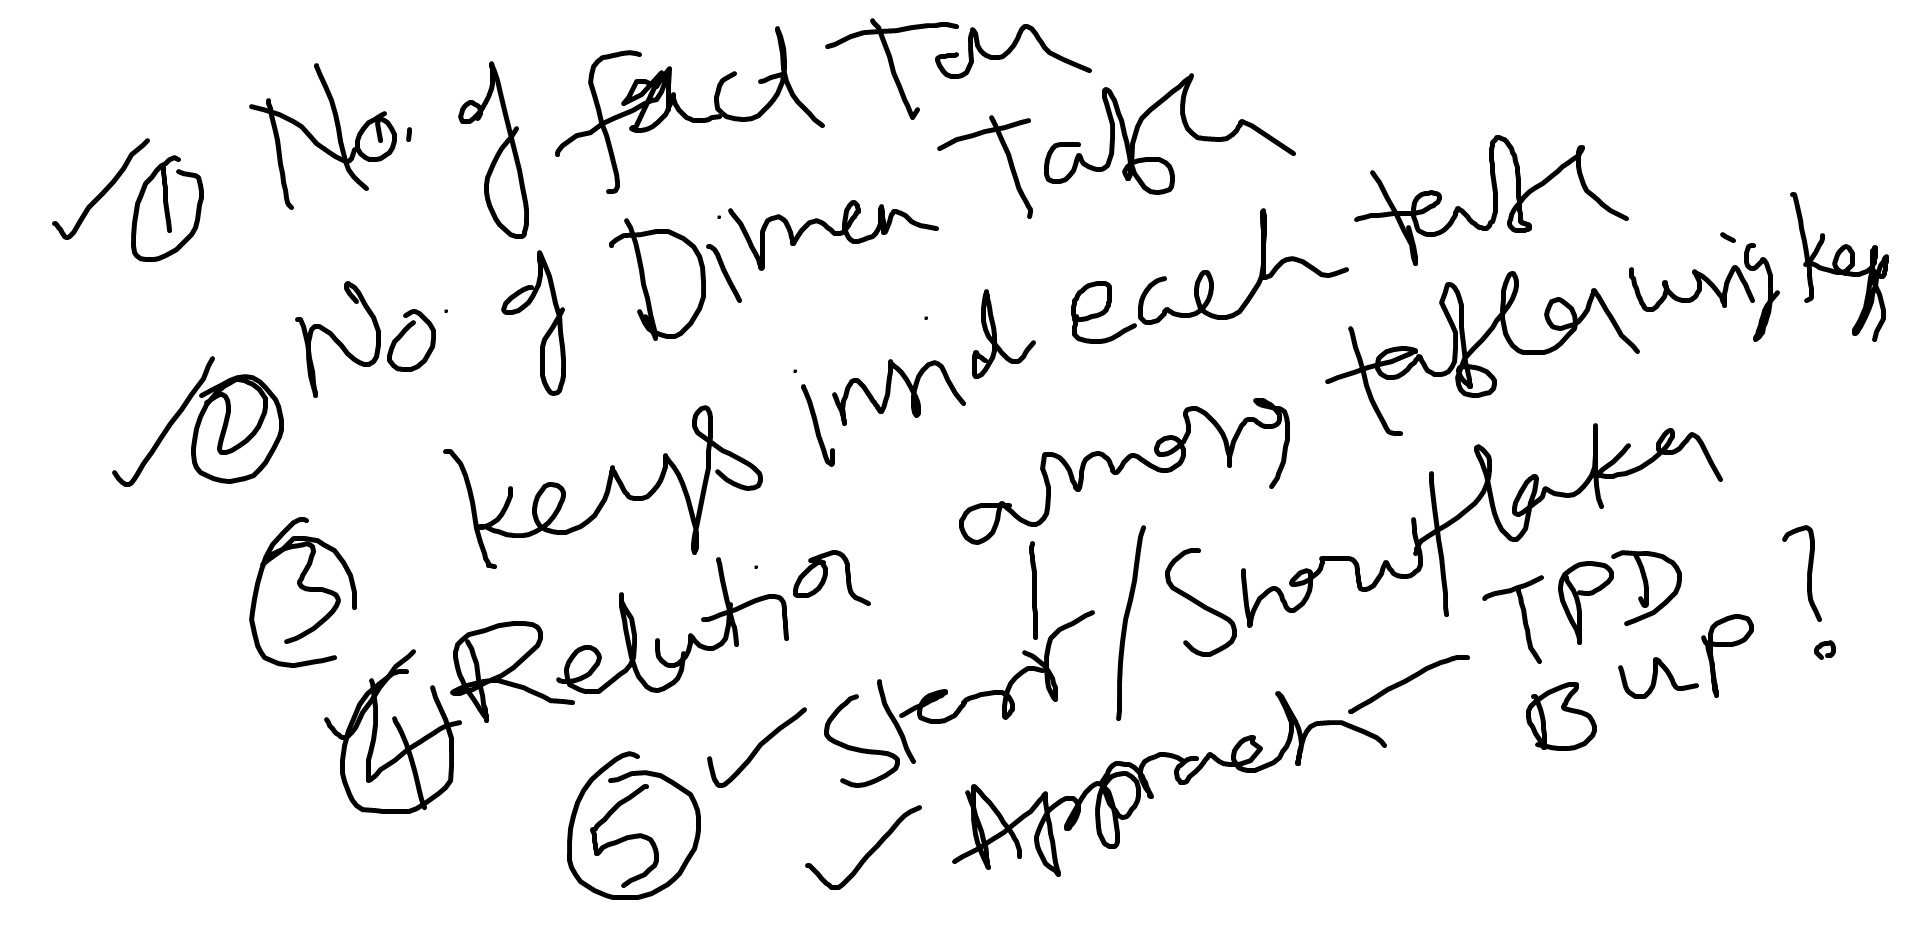 ① No. of fact Tan
② No. of Dimen Table
③ keys insid each
④ Relation among tables using keys
⑤ Start / Snowflakes
Approach - TPD
BUP ?